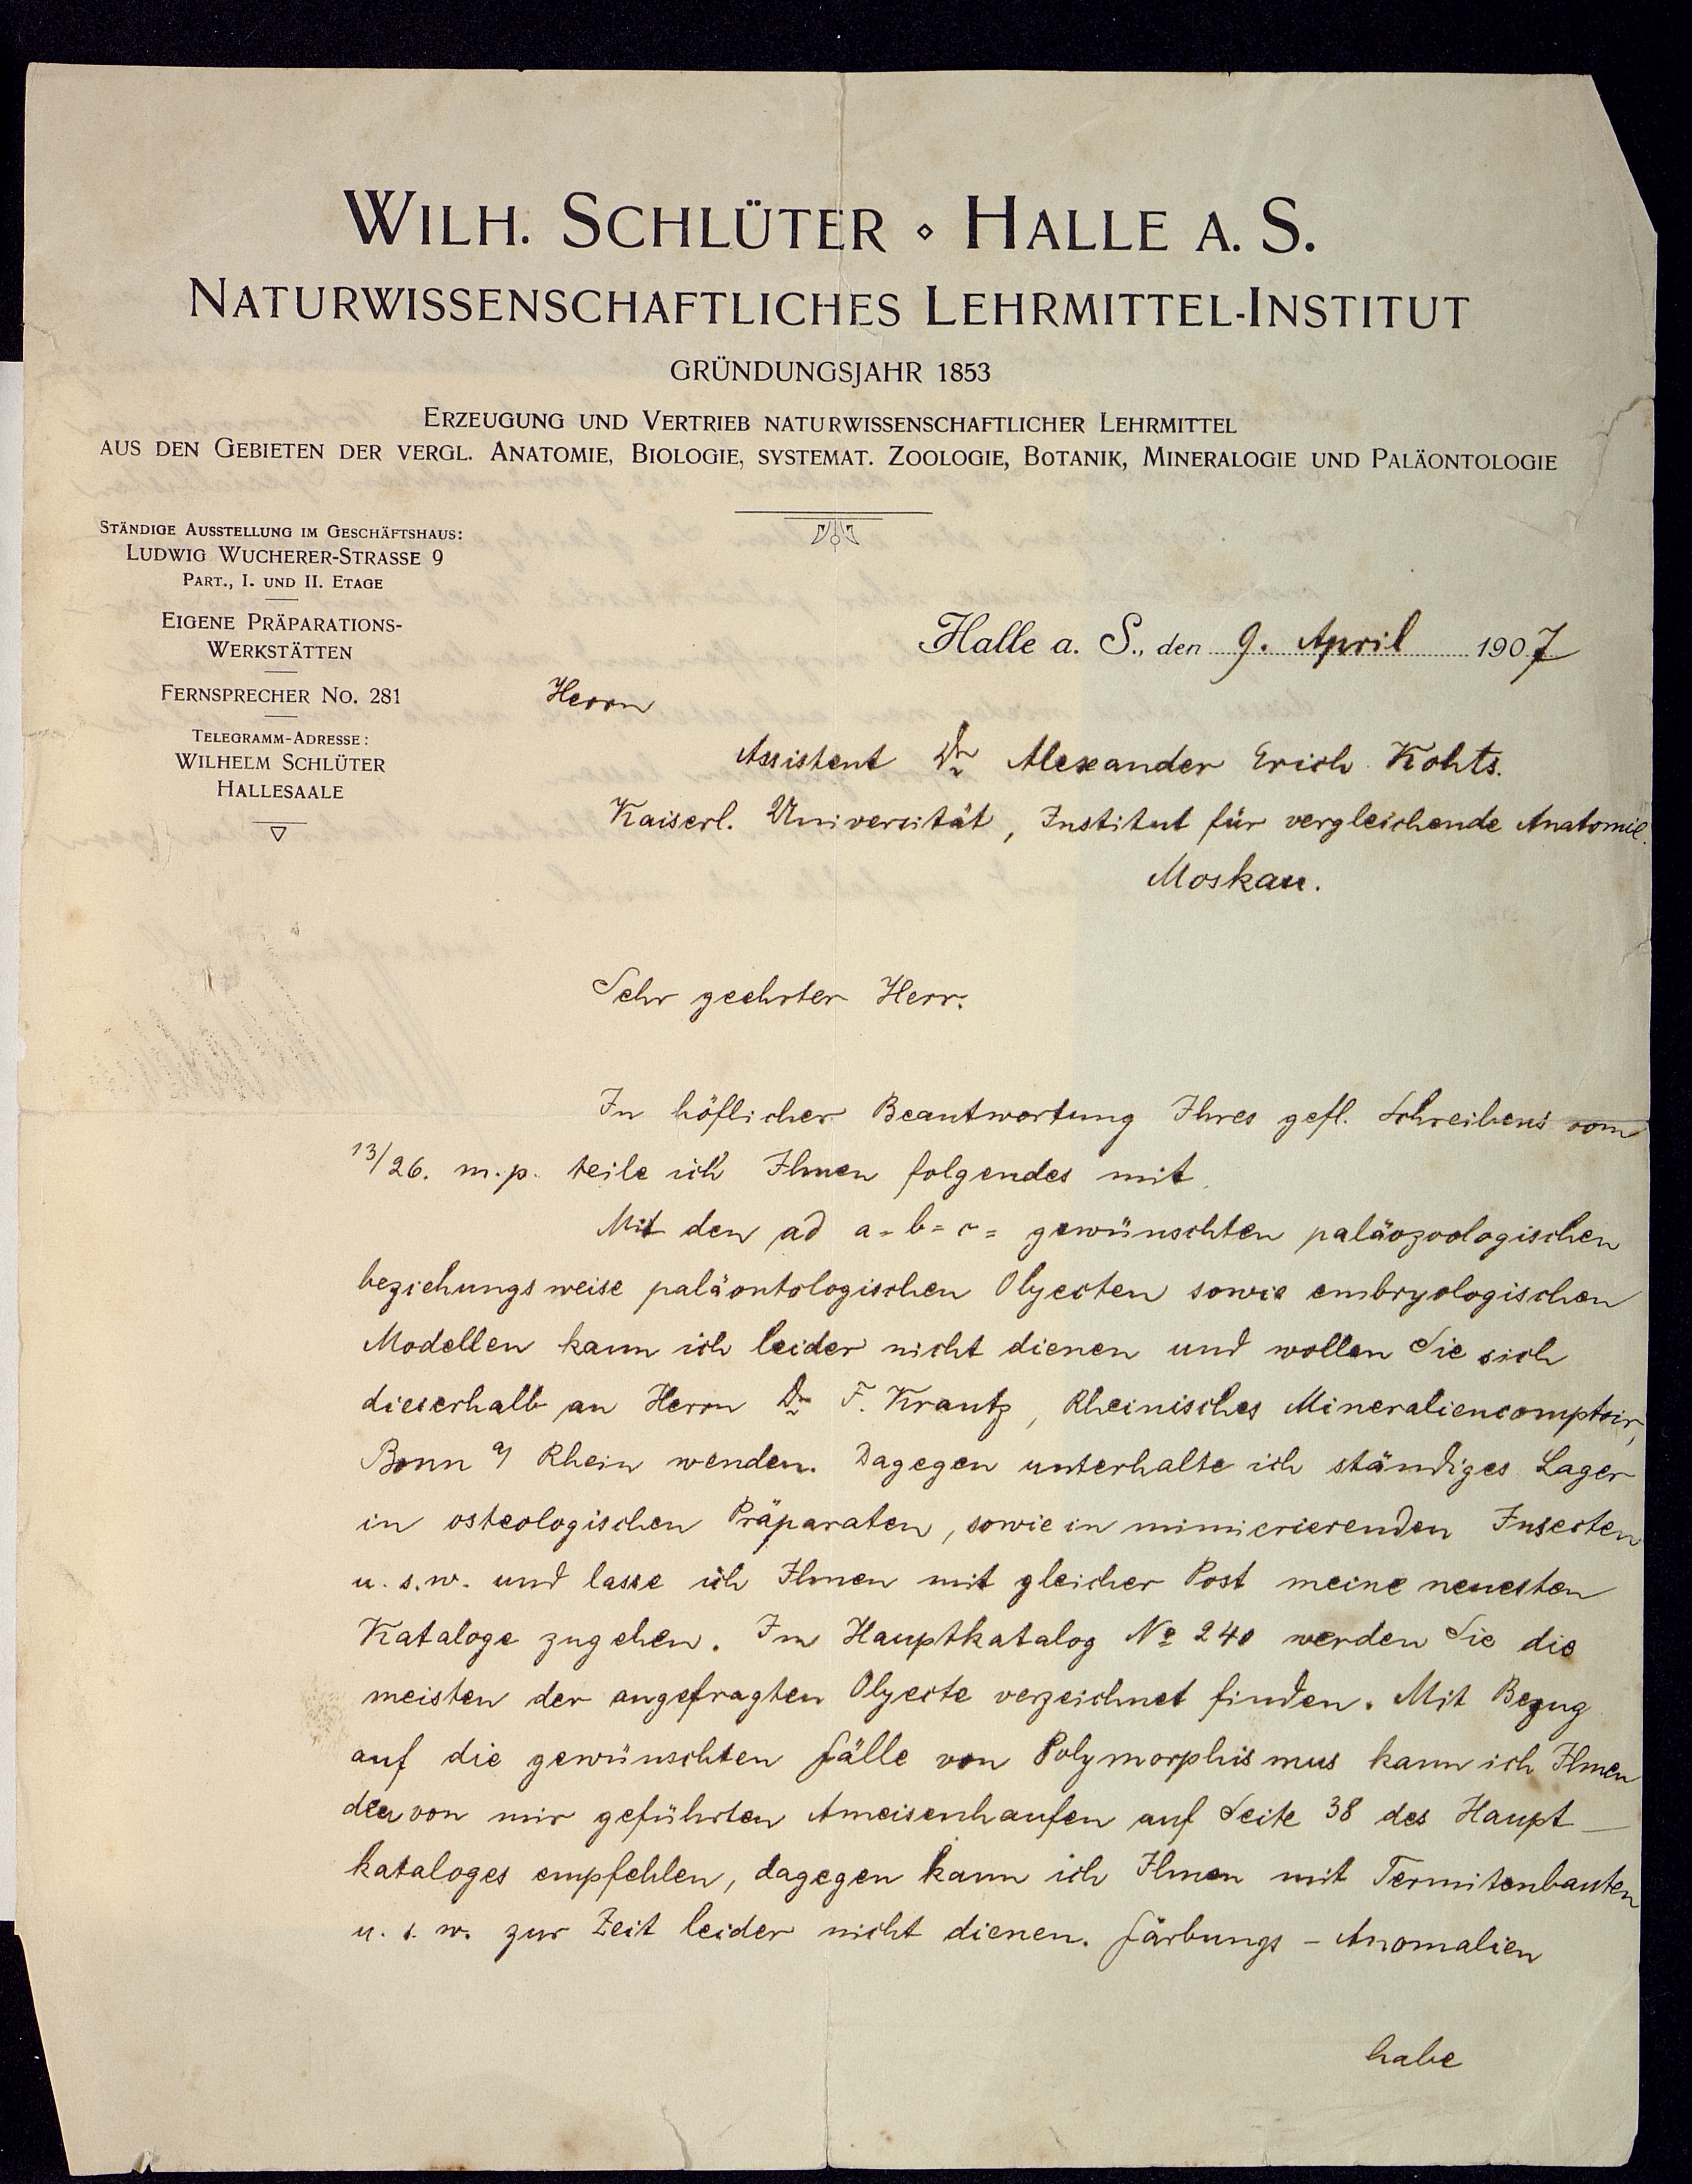 WILH. SCHLÜTER ⋄ HALLE A. S.
NATURWISSENSCHAFTLICHES LEHRMITTEL-INSTITUT
GRÜNDUNGSJAHR 1853
ERZEUGUNG UND VERTRIEB NATURWISSENSCHAFTLICHER LEHRMITTEL
AUS DEN GEBIETEN DER VERGL. ANATOMIE, BIOLOGIE, SYSTEMAT. ZOOLOGIE, BOTANIK, MINERALOGIE UND PALÄONTOLOGIE
STÄNDIGE AUSSTELLUNG IM GESCHÄFTSHAUS:
LUDWIG WUCHERER-STRASSE 9
PART., I. UND II. ETAGE
EIGENE PRÄPARATIONS-
WERKSTÄTTEN
FERNSPRECHER NO. 281
TELEGRAMM-ADRESSE:
WILHELM SCHLÜTER
HALLESAALE
Halle a. S., den 9. April 1907
Herrn
Assistent Dr Alexander Erich Kohts.
Kaiserl. Universität, Institut für vergleichende Anatomie.
Moskau.
Sehr geehrter Herr.
In höflicher Beantwortung Ihres gefl. Schreibens vom
13/26. m.p. teile ich Ihnen folgendes mit.
Mit den ad a=b=c= gewünschten paläozoologischen
beziehungsweise paläontologischen Objecten sowie embryologischen
Modellen kann ich leider nicht dienen und wollen Sie sich
dieserhalb an Herrn Dr F. Krantz, Rheinisches Mineraliencomptoir,
Bonn a/ Rhein wenden. Dagegen unterhalte ich ständiges Lager
in osteologischen Präparaten, sowie in mimicrierenden Insecten
u. s. w. und lasse ich Ihnen mit gleicher Post meine neuesten
Kataloge zugehen. Im Hauptkatalog No 240 werden Sie die
meisten der angefragten Objecte verzeichnet finden. Mit Bezug
auf die gewünschten Fälle von Polymorphismus kann ich Ihnen
den von mir geführten Ameisenhaufen auf Seite 38 des Haupt-
kataloges empfehlen, dagegen kann ich Ihnen mit Termitenbauten
u. s. w. zur Zeit leider nicht dienen. Färbungs-Anomalien
habe